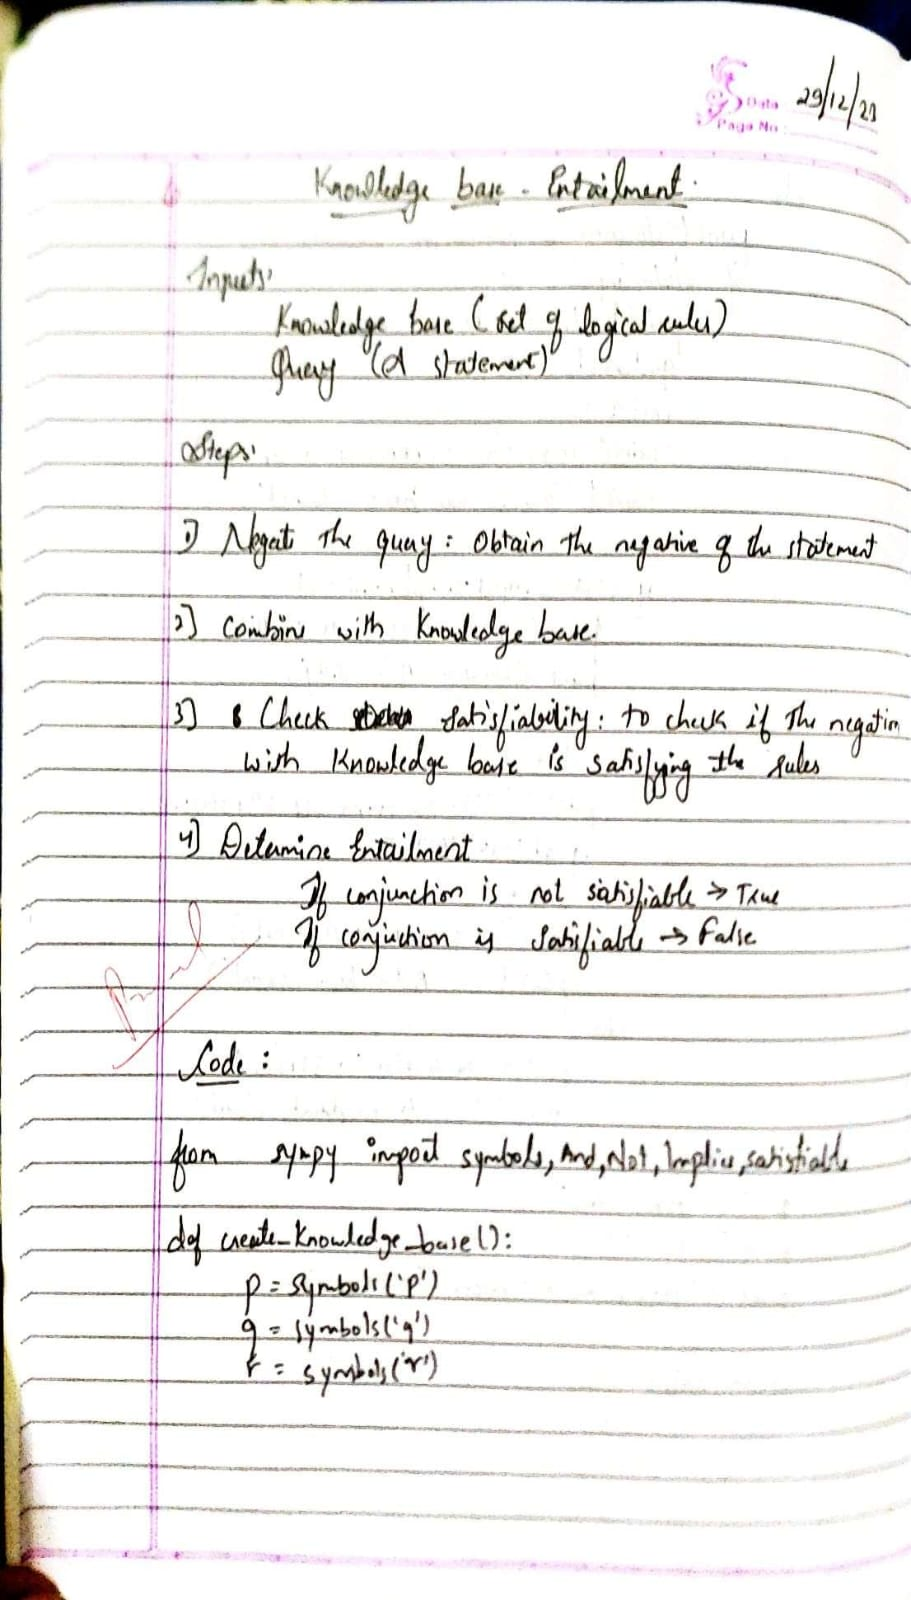 Date 29/12/23
Page No:
Knowledge base - Entailment.
Inputs:
Knowledge base (set of logical rules)
Query (A statement)
Steps:
1] Negate the query: Obtain the negative of the statement
2] Combine with Knowledge base.
3] Check satisfiability: to check if the negation
with Knowledge base is satisfying the rules
4] Determine Entailment
If conjunction is not satisfiable → True
If conjuction is satisfiable → False
Code:
from sympy import symbols, And, Not, Implies, satisfiable
def create_knowledge_base():
p = symbols('p')
q = symbols('q')
r = symbols('r')